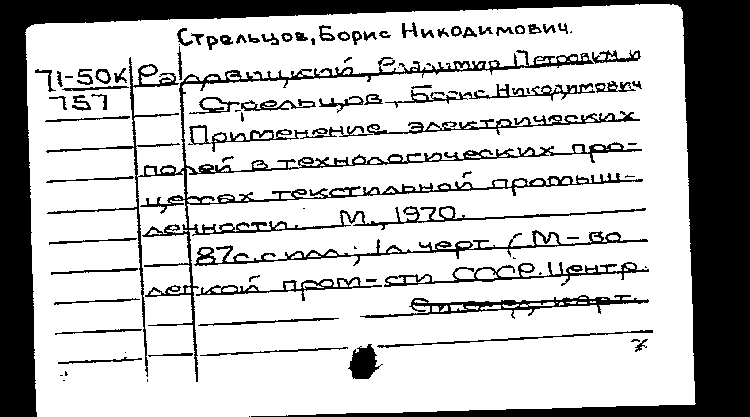 Стрельцов, Борис Никодимович.
71-50к Радовицкий, Владимир Петрович и
757 Стрельцов, Борис Никодимович
Применение электрических
полей в технологических про-
цессах текстильной промыш-
ленности. М., 1970.
87с. с илл.; 1л. черт. (М-во
легкой пром-сти СССР. Центр.
См. след. карт.